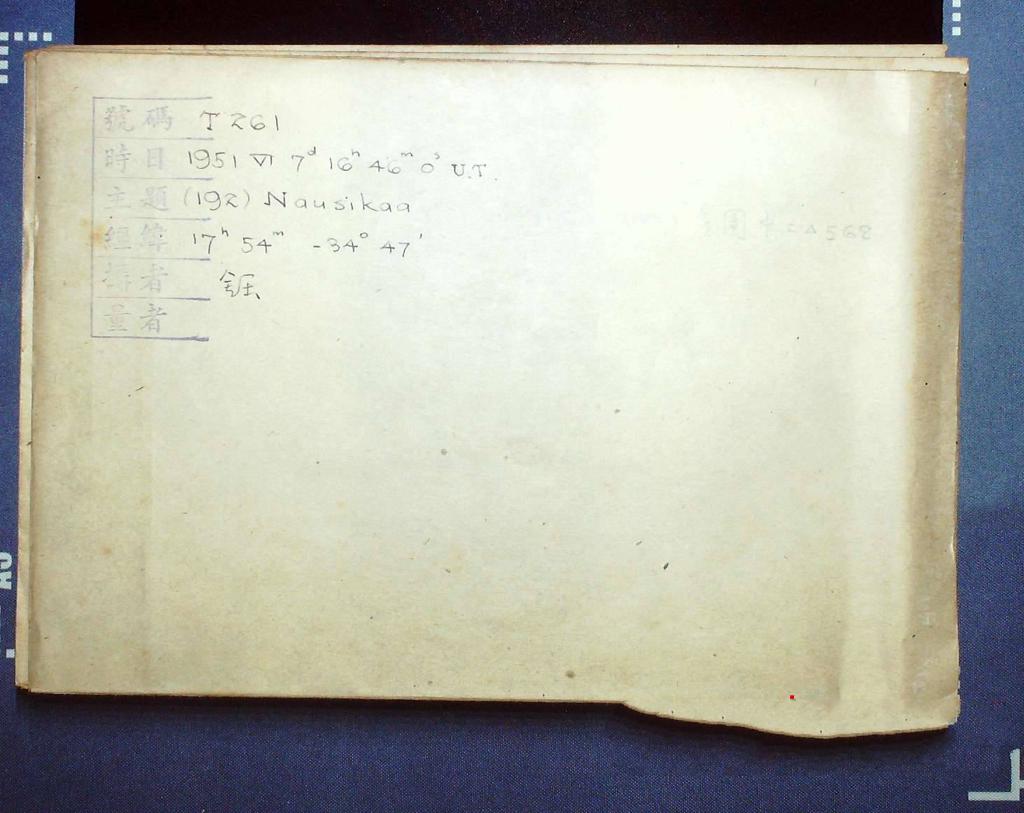 號碼 T 261
時日 1951 VI 7ᵈ 16ʰ 46ᵐ 0ˢ U.T.
主題 (192) Nausikaa
經緯 17ʰ 54ᵐ -34° 47'
攝者 鈺
量者